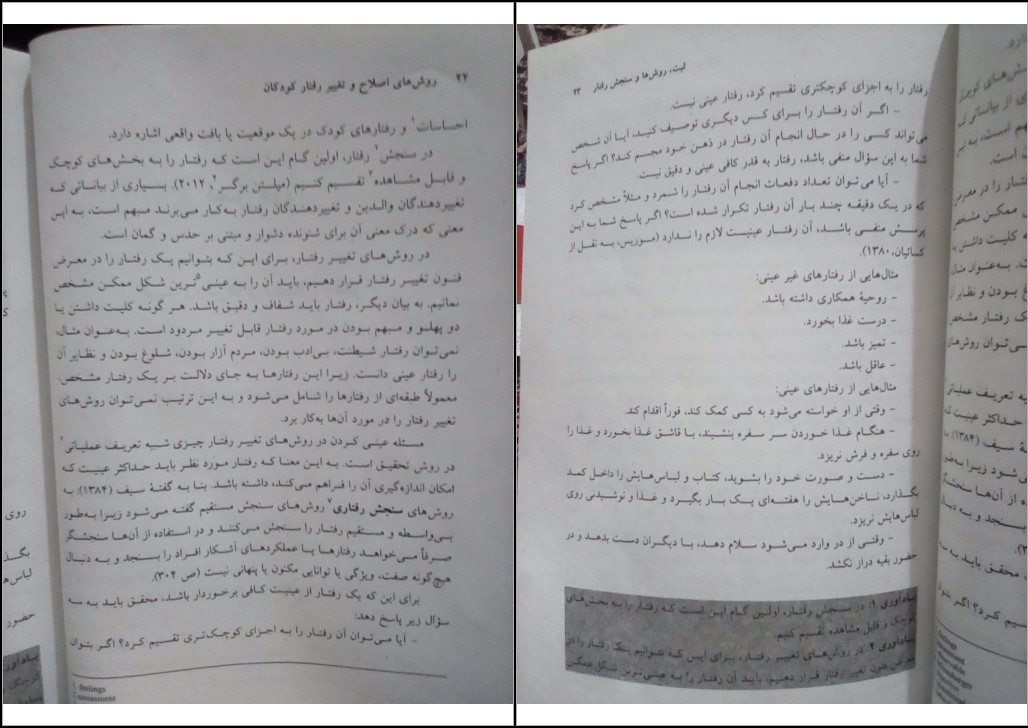 ۲۲ روش‌های اصلاح و تغییر رفتار کودکان
احساسات۱ و رفتارهای کودک در یک موقعیت یا بافت واقعی اشاره دارد.
در سنجش۲ رفتار، اولین گام این است که رفتار را به بخش‌های کوچک
و قابل مشاهده۳ تقسیم کنیم (میلتن برگر۴، ۲۰۱۲). بسیاری از بیاناتی که
تغییردهندگان والدین و تغییردهندگان رفتار به‌کار می‌برند مبهم است، به این
معنی که درک معنی آن برای شنونده دشوار و مبتنی بر حدس و گمان است.
در روش‌های تغییر رفتار، برای این که بتوانیم یک رفتار را در معرض
فنون تغییر رفتار قرار دهیم، باید آن را به عینی۵‌ترین شکل ممکن مشخص
نمائیم. به بیان دیگر، رفتار باید شفاف و دقیق باشد. هر گونه کلیت داشتن یا
دو پهلو و مبهم بودن در مورد رفتار قابل تغییر مردود است. به‌عنوان مثال،
نمی‌توان رفتار شیطنت، بی‌ادب بودن، مردم آزار بودن، شلوغ بودن و نظایر آن
را رفتار عینی دانست. زیرا این رفتارها به جای دلالت بر یک رفتار مشخص،
معمولاً طبقه‌ای از رفتارها را شامل می‌شود و به این ترتیب نمی‌توان روش‌های
تغییر رفتار را در مورد آن‌ها به‌کار برد.
مسئله عینی کردن در روش‌های تغییر رفتار چیزی شبیه تعریف عملیاتی۶
در روش تحقیق است. به این معنا که رفتار مورد نظر باید حداکثر عینیت که
امکان اندازه‌گیری آن را فراهم می‌کند، داشته باشد. بنا به گفتهٔ سیف (۱۳۸۴)، به
روش‌های سنجش رفتاری۷ روش‌های سنجش مستقیم گفته می‌شود زیرا به‌طور
بی‌واسطه و مستقیم رفتار را سنجش می‌کنند و در استفاده از آن‌ها سنجشگر
صرفاً می‌خواهد رفتارها یا عملکردهای آشکار افراد را بسنجد و به دنبال
هیچ‌گونه صفت، ویژگی یا توانایی مکنون یا پنهانی نیست (ص ۳۰۴).
برای این که یک رفتار از عینیت کافی برخوردار باشد، محقق باید به سه
سؤال زیر پاسخ دهد:
- آیا می‌توان آن رفتار را به اجزای کوچک‌تری تقسیم کرد؟ اگر بتوان
1. feelings
2. assessment
ثبت، روش‌ها و سنجش رفتار ۲۳
رفتار را به اجزای کوچکتری تقسیم کرد، رفتار عینی نیست.
- اگر آن رفتار را برای کس دیگری توصیف کنید، آیا آن شخص
می‌تواند کسی را در حال انجام آن رفتار در ذهن خود مجسم کند؟ اگر پاسخ
شما به این سؤال منفی باشد، رفتار به قدر کافی عینی و دقیق نیست.
- آیا می‌توان تعداد دفعات انجام آن رفتار را شمرد و مثلاً مشخص کرد
که در یک دقیقه چند بار آن رفتار تکرار شده است؟ اگر پاسخ شما به این
پرسش منفی باشد، آن رفتار عینیت لازم را ندارد (موریس، به نقل از
کسائیان، ۱۳۸۰).
مثال‌هایی از رفتارهای غیر عینی:
- روحیهٔ همکاری داشته باشد.
- درست غذا بخورد.
- تمیز باشد.
- عاقل باشد.
مثال‌هایی از رفتارهای عینی:
- وقتی از او خواسته می‌شود به کسی کمک کند، فوراً اقدام کند.
- هنگام غذا خوردن سر سفره بنشیند، با قاشق غذا بخورد و غذا را
روی سفره و فرش نریزد.
- دست و صورت خود را بشوید، کتاب و لباس‌هایش را داخل کمد
بگذارد، ناخن‌هایش را هفته‌ای یک بار بگیرد و غذا و نوشیدنی روی
لباس‌هایش نریزد.
- وقتی از در وارد می‌شود سلام دهد، با دیگران دست بدهد و در
حضور بقیه دراز نکشد.
یادآوری ۱: در سنجش رفتار، اولین گام این است که رفتار را به بخش‌های
کوچک و قابل مشاهده تقسیم کنیم.
یادآوری ۲: در روش‌های تغییر رفتار، برای این که بتوانیم یک رفتار را در
معرض فنون تغییر رفتار قرار دهیم، باید آن رفتار را به عینی‌ترین شکل ممکن